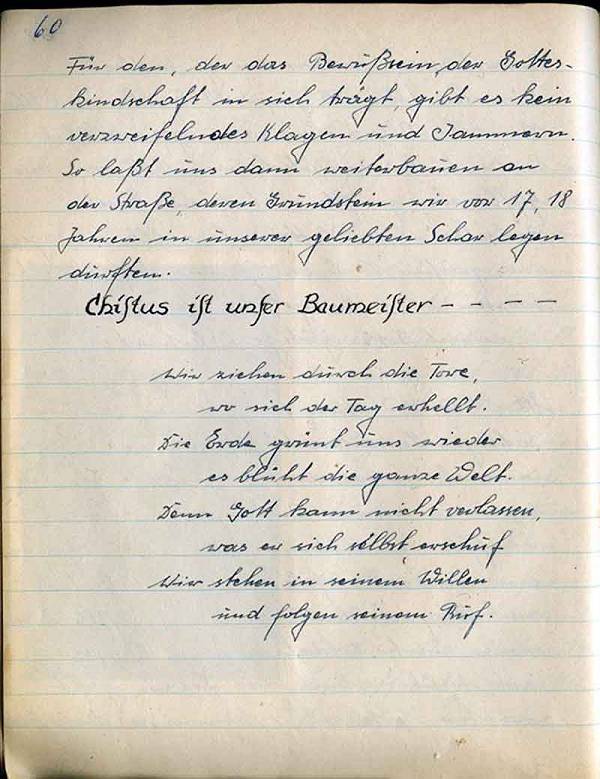 60
Für den, der das Bewußsein der Gottes-
kindschaft in sich trägt, gibt es kein
verzweifelndes Klagen und Jammern.
So laßt uns dann weiterbauen an
der Straße, deren Grundstein wir vor 17, 18
Jahren in unserer geliebten Schar legen
durften.
Christus ist unser Baumeister – – – –
Wir ziehen durch die Tore,
wo sich der Tag erhellt.
Die Erde grünt uns wieder
es blüht die ganze Welt.
Denn Gott kann nicht verlassen,
was er sich selbst erschuf
Wir stehen in seinem Willen
und folgen seinem Ruf.